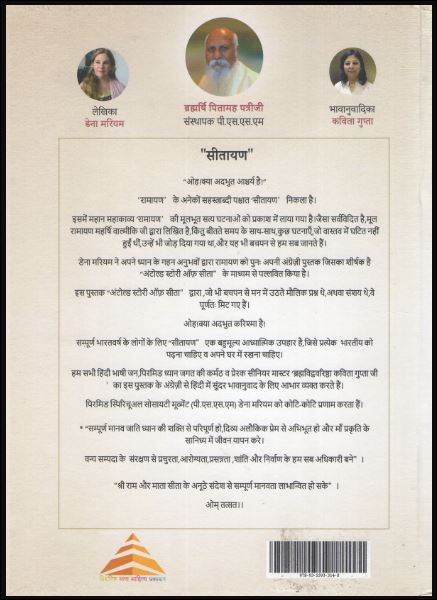 ब्रह्मर्षि पितामह पत्रीजी
संस्थापक पी.एस.एस.एम
लेखिका
डेना मरियम
भावानुवादिका
कविता गुप्ता
"सीतायण"
"ओह!क्या अदभुत आश्चर्य है।"
'रामायण' के अनेकों सहस्त्राब्दी पश्चात 'सीतायण' निकला है।
इसमें महान महाकाव्य 'रामायण' की मूलभूत सत्य घटनाओं को प्रकाश में लाया गया है।जैसा सर्वविदित है,मूल
रामायण महर्षि वाल्मीकि जी द्वारा लिखित है,किंतु बीतते समय के साथ-साथ,कुछ घटनाएँ,जो वास्तव में घटित नहीं
हुई थीं,उन्हें भी जोड़ दिया गया था,और यह भी बचपन से हम सब जानते हैं।
डेना मरियम ने अपने ध्यान के गहन अनुभवों द्वारा रामायण को पुनः अपनी अंग्रेज़ी पुस्तक जिसका शीर्षक है
"अंटोल्ड स्टोरी ऑफ़ सीता" के माध्यम से पल्लवित किया है।
इस पुस्तक "अंटोल्ड स्टोरी ऑफ़ सीता" द्वारा ,जो भी बचपन से मन में उठते मौलिक प्रश्न थे,अथवा संशय थे,वे
पूर्णतः मिट गए हैं।
ओह!क्या अदभुत करिश्मा है!
सम्पूर्ण भारतवर्ष के लोगों के लिए "सीतायण" एक बहुमूल्य आध्यात्मिक उपहार है,जिसे प्रत्येक भारतीय को
पढ़ना चाहिए व अपने घर में रखना चाहिए।
हम सभी हिंदी भाषी जन,पिरमिड ध्यान जगत की कर्मठ व प्रेरक सीनियर मास्टर 'ब्रह्मविद्वरिष्ठा कविता गुप्ता जी
' का इस पुस्तक के अंग्रेज़ी से हिंदी में सुंदर भावानुवाद के लिए आभार व्यक्त करते हैं।
पिरमिड स्पिरिचुअल सोसायटी मूव्मेंट (पी.एस.एस.एम) डेना मरियम को कोटि-कोटि प्रणाम करता हैं।
* "सम्पूर्ण मानव जाति ध्यान की शक्ति से परिपूर्ण हो,दिव्य अलौकिक प्रेम से अभिभूत हो और माँ प्रकृति के
सानिध्य में जीवन यापन करे।
वन्य सम्पदा के संरक्षण से प्रचुरता,आरोग्यता,प्रसन्नता ,शांति और निर्वाण के हम सब अधिकारी बने" ।
"श्री राम और माता सीता के अनूठे संदेश से सम्पूर्ण मानवता लाभान्वित हो सके" ।
ओम् तत्सत।।